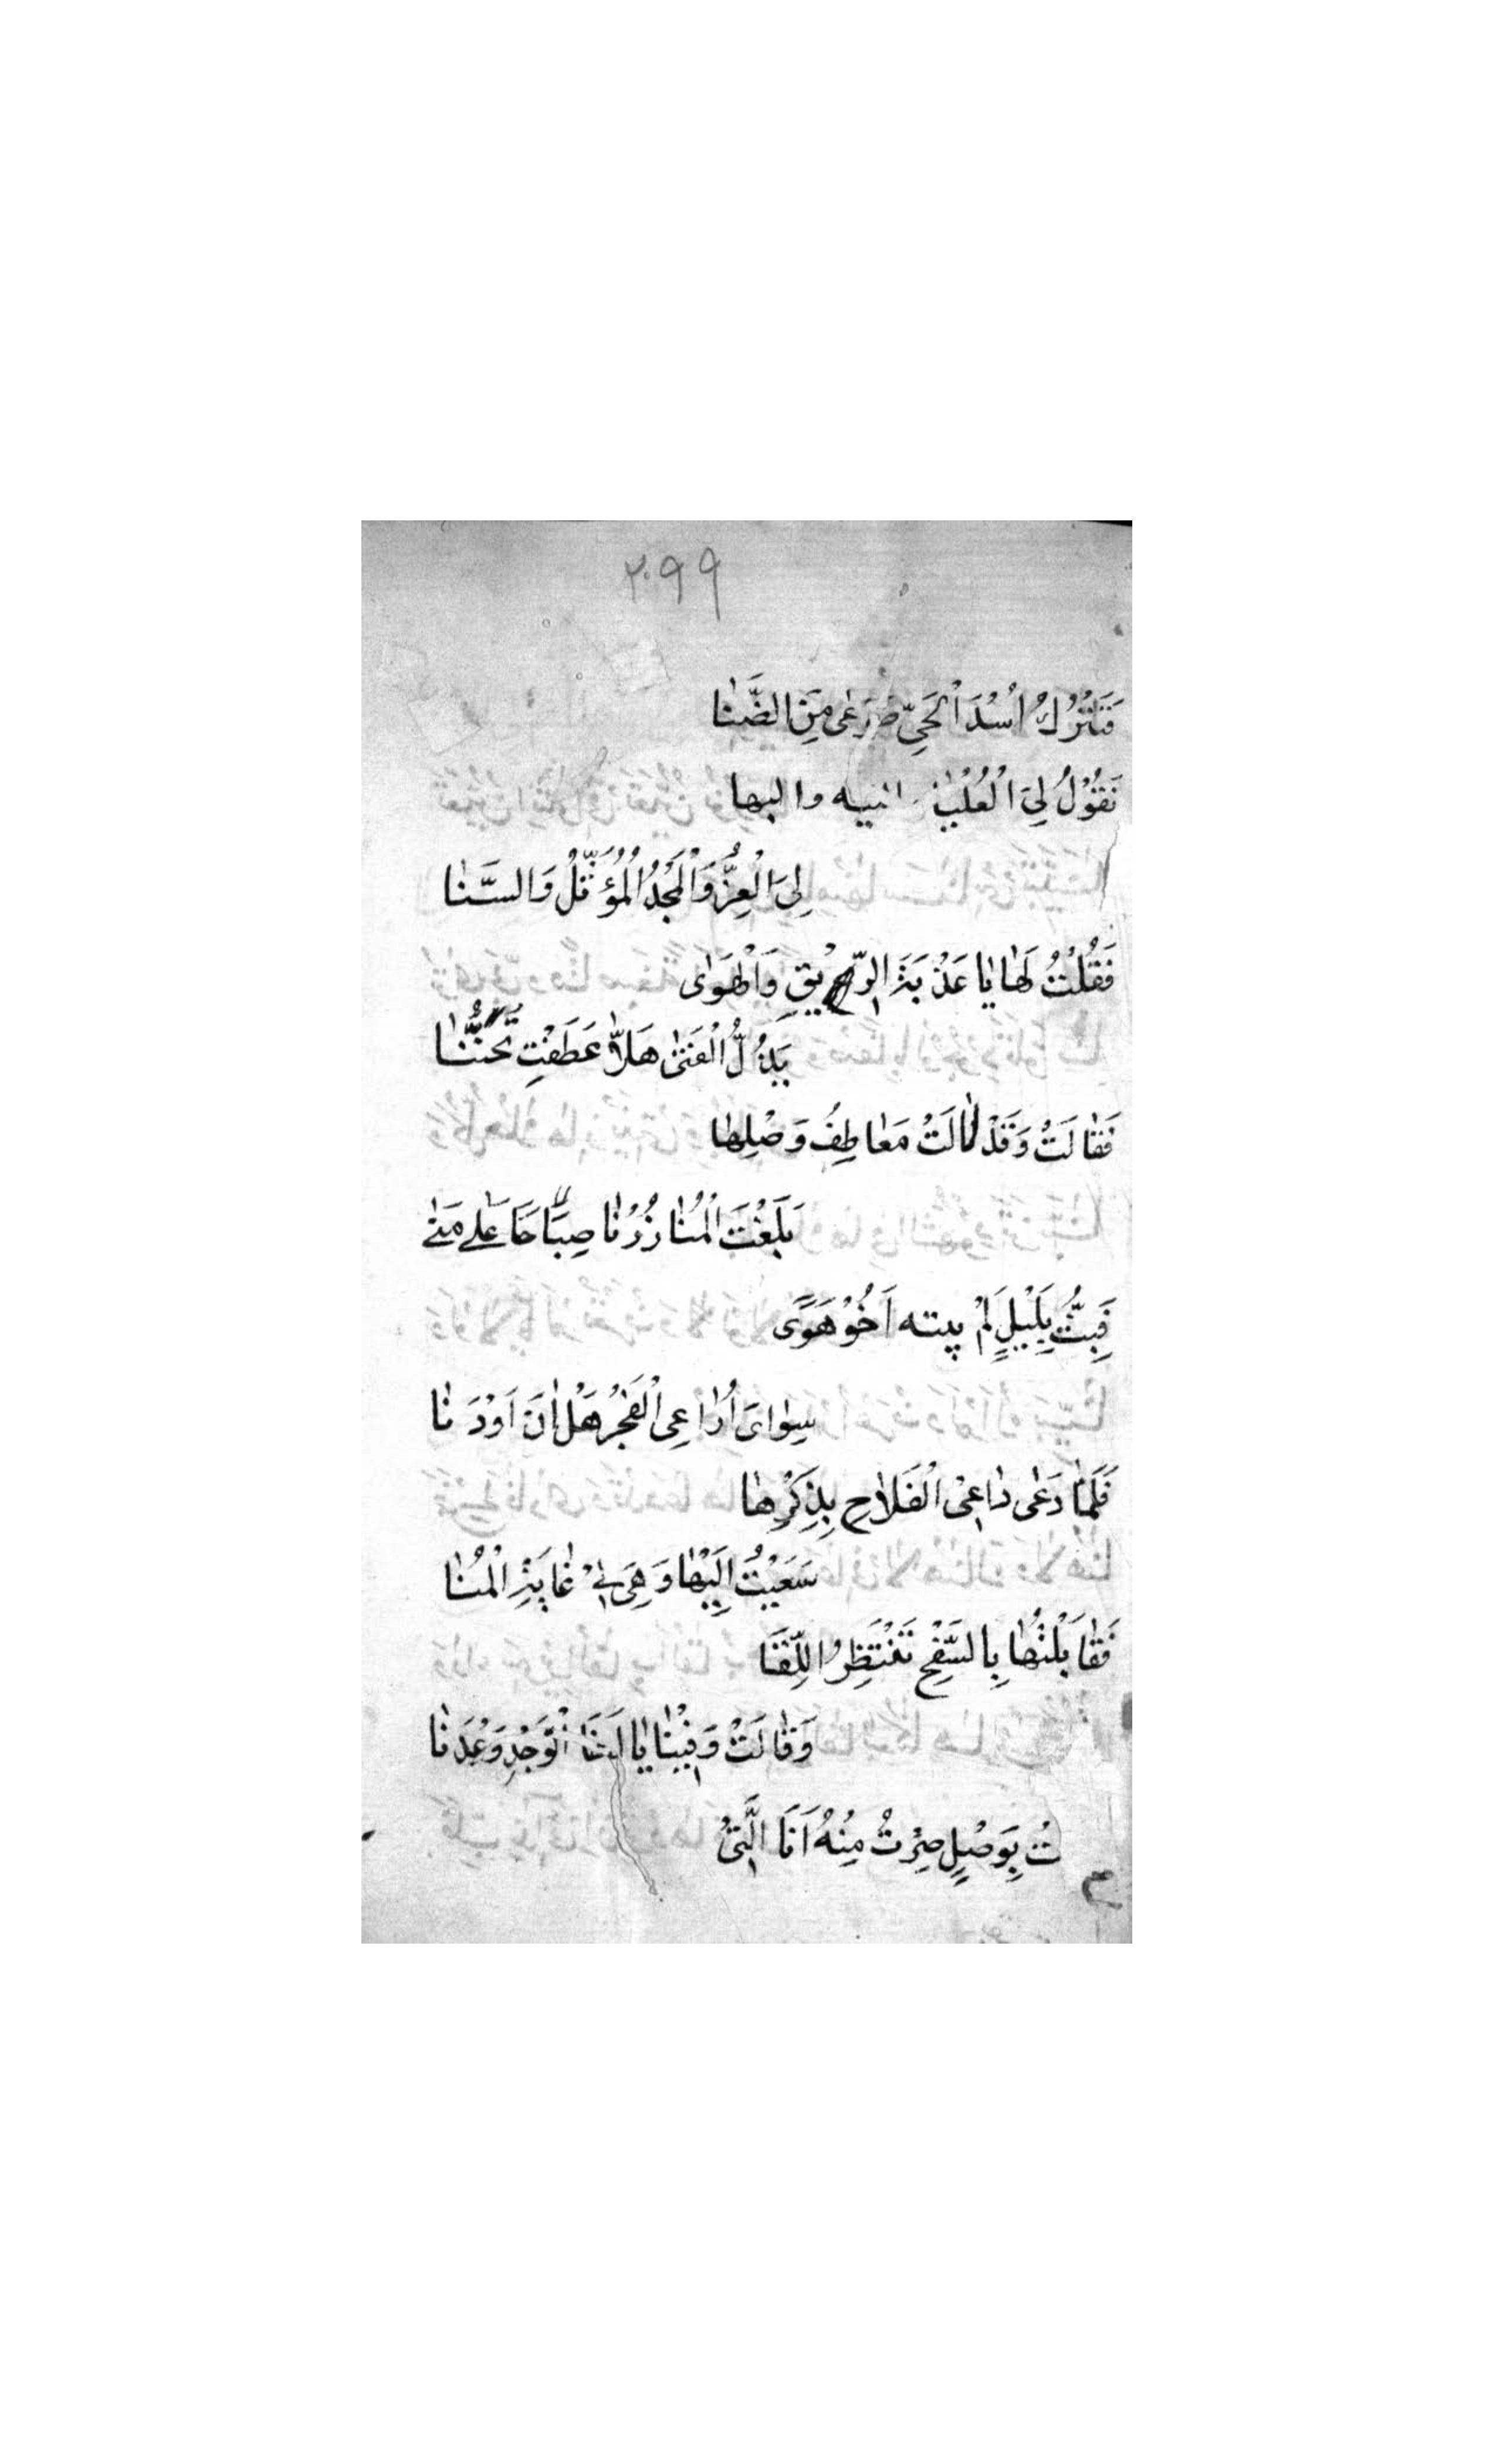 ٢٠٩٩
فَتَتْرُكُ اُسْدَ الْحَيِّ صَرْعٰى مِنَ الضَّنٰا
تَقُوْلُ لِيَ الْعُلْيٰا والبها
لِيَ الْعِزُّ وَالْمَجْدُ الْمُؤَثَّلُ وَالسَّنٰا
فَقُلْتُ لَهٰا يٰا عَذْبَةَ الرِّيْقِ وَالْهَوٰى
يَذُلُّ الْفَتٰى هَلّٰا عَطَفْتِ تَحَنُّنٰا
فَقٰالَتْ وَقَدْ لٰانَتْ مَعٰاطِفُ وَصْلِهٰا
بَلَغْتَ الْمُنٰا زُرْنٰا صِبَاحًا عَلٰى مَنٰى
فَبِتُّ بِلَيْلٍ لَمْ يبته اَخُوْ هَوًى
سِوٰاىَ اُرٰاعِى الْفَجْرَ هَلْ اٰنَ اَوْ دَنٰا
فَلَمّٰا دَعٰى دٰاعِىْ الْفَلاٰحِ بِذِكْرِهٰا
سَعَيْتُ اِلَيْهٰا وَهِىَ فِىْ غٰايَةِ الْمُنٰا
فَقٰابَلْتُهٰا بِالسَّفْحِ تَنْتَظِرُ اللِّقَا
وَقٰالَتْ وَفَيْنٰا يٰا الْوَجْدِ وَعْدَنٰا
تُ بِوَصْلٍ صِرْتُ مِنْهُ اَنَا الَّتِىْ